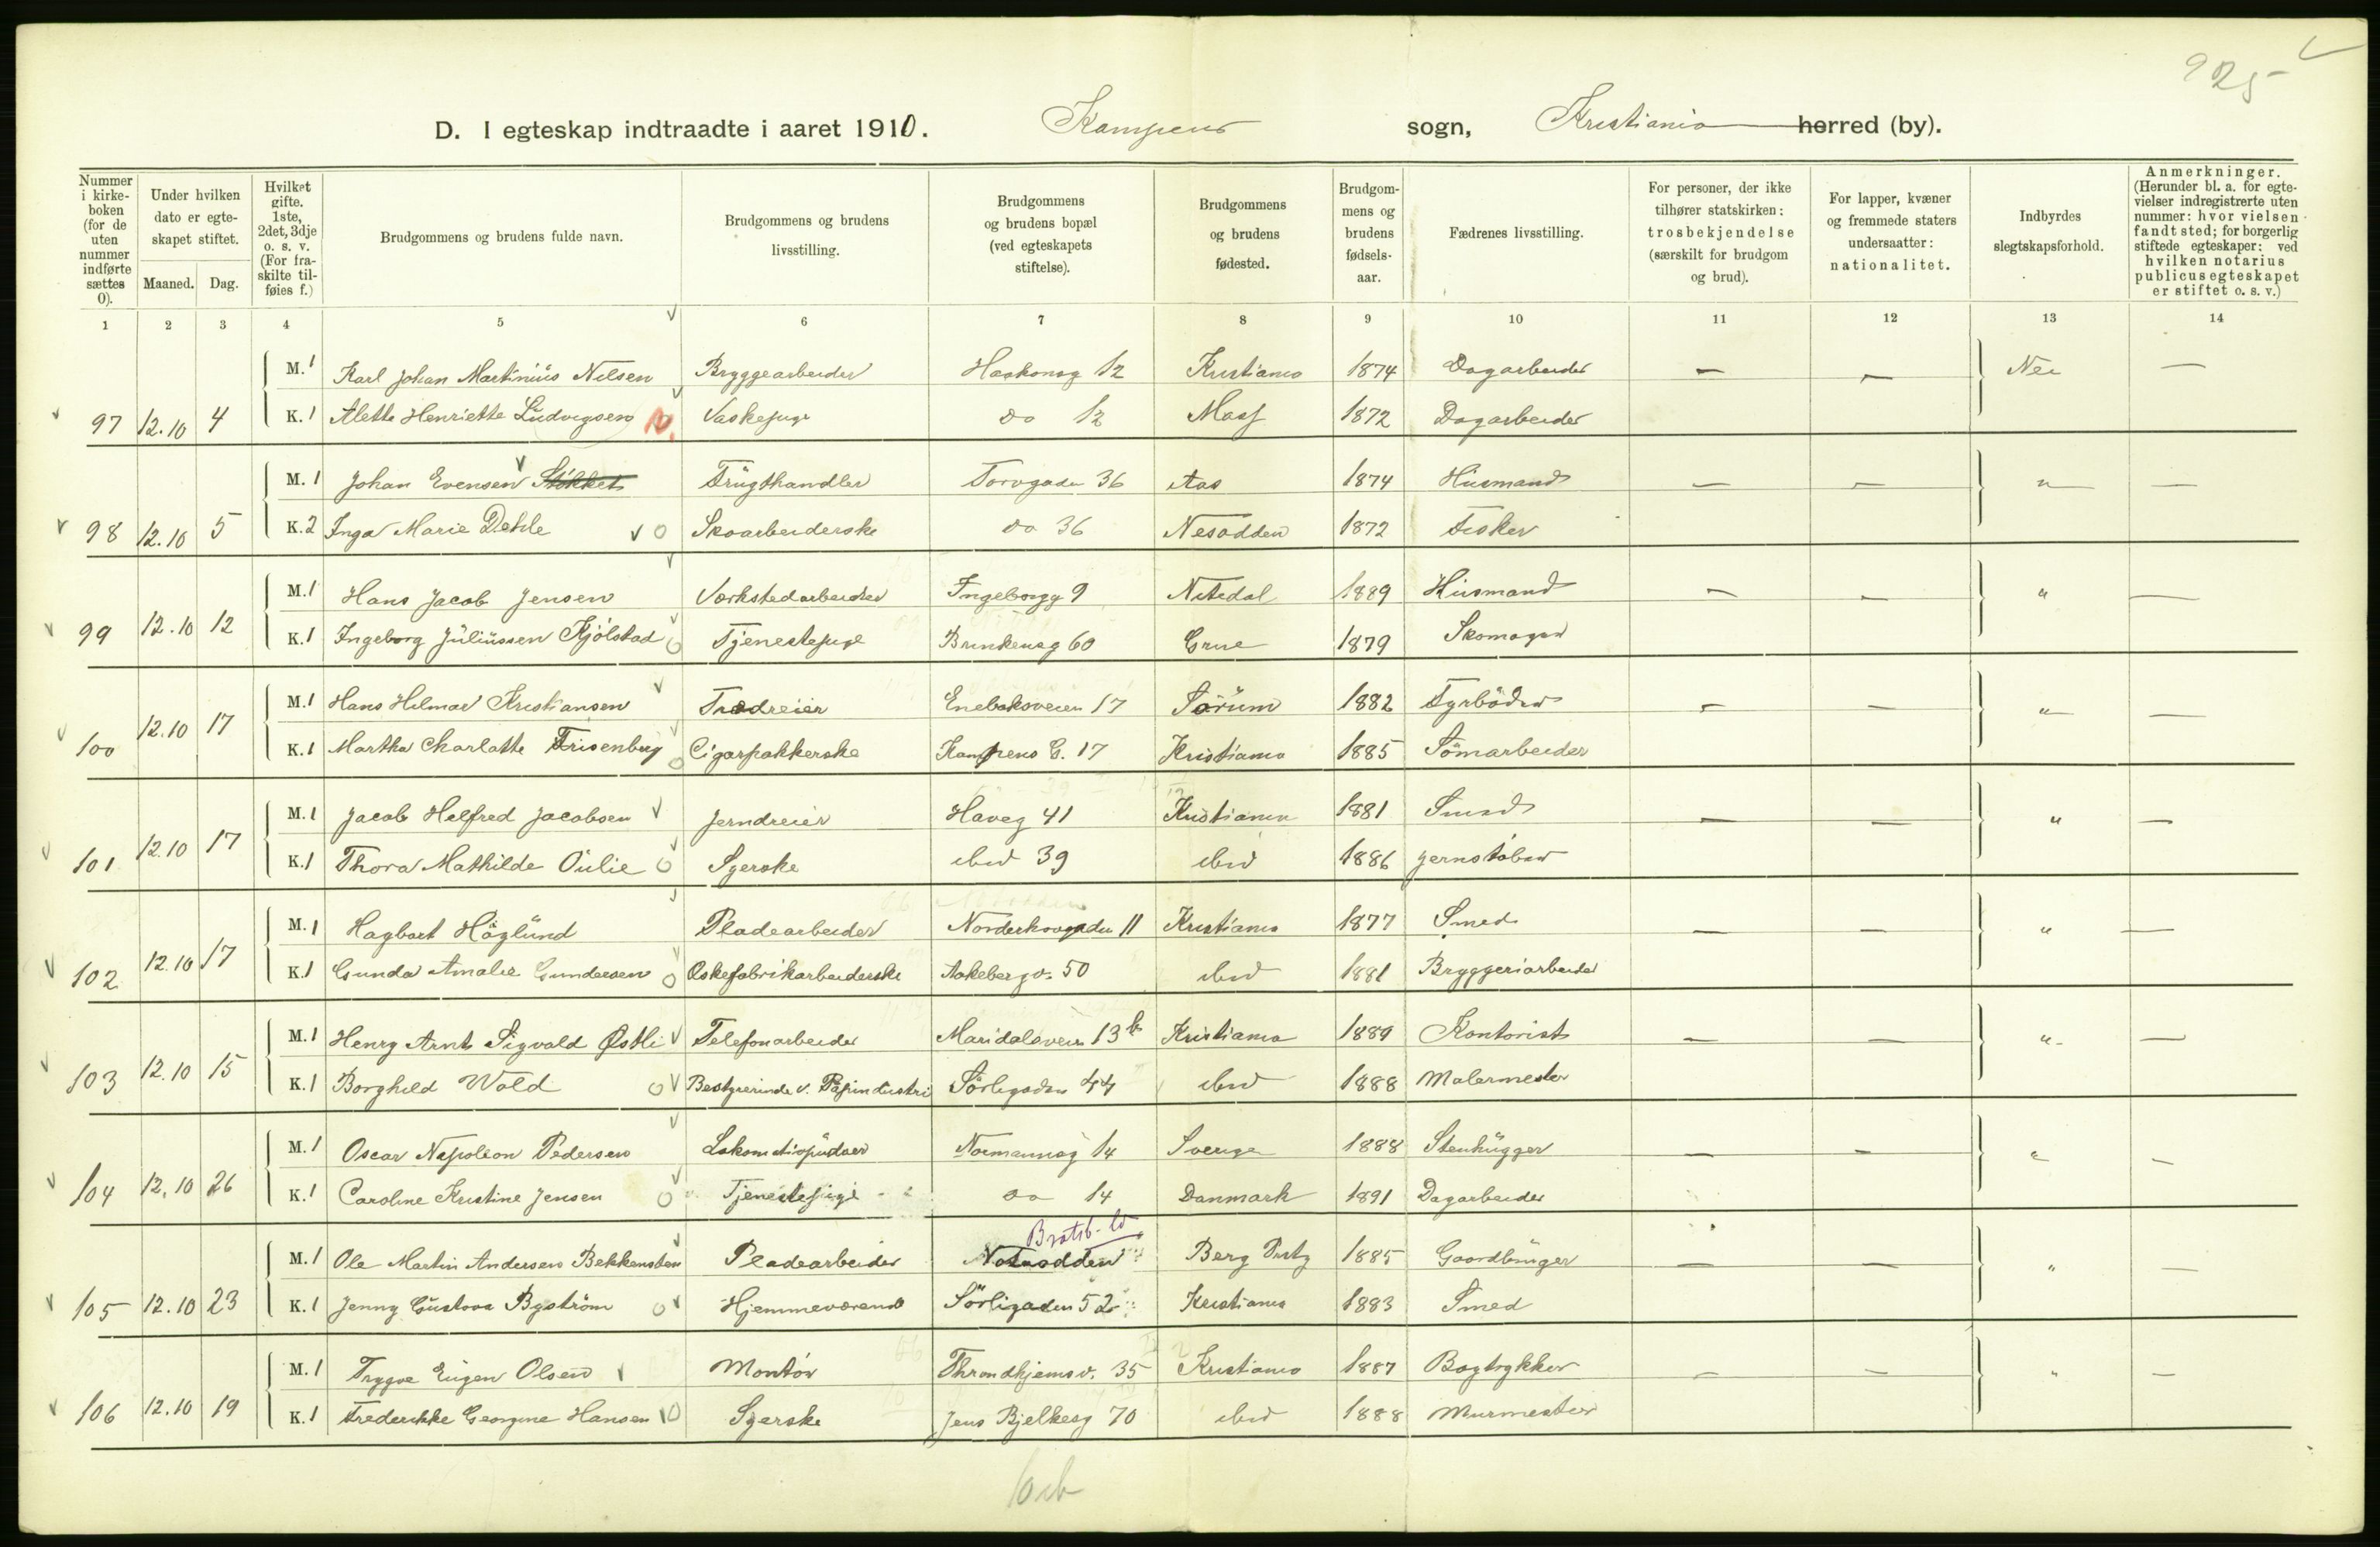 925
D. I egteskap indtraadte i aaret 1910. Kampens sogn, Kristiania herred (by).
Nummer i kirkeboken (for de uten nummer indførte sættes 0). Under hvilken dato er egteskapet stiftet. Maaned. Dag. Hvilket gifte. 1ste, 2det, 3dje o. s. v. (For fraskilte tilføies f.) Brudgommens og brudens fulde navn. Brudgommens og brudens livsstilling. Brudgommens og brudens bopæl (ved egteskapets stiftelse). Brudgommens og brudens fødested. Brudgommens og brudens fødselsaar. Fædrenes livsstilling. For personer, der ikke tilhører statskirken: trosbekjendelse (særskilt for brudgom og brud). For lapper, kvæner og fremmede staters undersaatter: nationalitet. Indbyrdes slegtskapsforhold. Anmerkninger. (Herunder bl. a. for egtevielser indregistrerte uten nummer: hvor vielsen fandt sted; for borgerlig stiftede egteskaper: ved hvilken notarius publicus egteskapet er stiftet o. s. v.)
1 2 3 4 5 6 7 8 9 10 11 12 13 14
M. 1 Karl Johan Martinius Nilsen Bryggearbeider Haakonsg 12 Kristiania 1874 Dagarbeider — — Nei —
97 12.10 4 K. 1 Alette Henriette Ludvigsen Vaskepige do 12 Moss 1872 Dagarbeider
M. 1 Johan Evensen Stokket Frugthandler Torvgaden 36 Aas 1874 Husmand — — " —
98 12.10 5 K. 2 Inga Marie Dehle Skoarbeiderske do 36 Nesodden 1872 Fisker
M. 1 Hans Jacob Jensen Værkstedarbeider Ingeborgg 9 Nitedal 1889 Husmand — — " —
99 12.10 12 K. 1 Ingeborg Juliussen Kjölstad Tjenestepige Brinkensg 60 Grue 1879 Skomager
M. 1 Hans Hilmar Kristiansen Trædreier Enebakveien 17 Sørum 1882 Fyrböder — — " —
100 12.10 17 K. 1 Martha Charlotte Frisenberg Cigarpakkerske Kampens G. 17 Kristiania 1885 Sömarbeider
M. 1 Jacob Helfred Jacobsen Jerndreier Haveg 41 Kristiania 1881 Smed — — " —
101 12.10 17 K. 1 Thora Mathilde Oulie Syerske ibid 39 ibid 1886 Jernstöber
M. 1 Hagbart Höglund Pladearbeider Norderhovgaden 11 Kristiania 1877 Smed — — " —
102 12.10 17 K. 1 Gunda Amalie Gundersen Eskefabrikarbeiderske Aakebergv. 50 ibid 1881 Bryggeriarbeider
M. 1 Henry Arnt Sigvald Østli Telefonarbeider Maridalsveien 13 b Kristiania 1889 Kontorist — — " —
103 12.10 15 K. 1 Borghild Wold Bestyrerinde v. Papirindustri Sörligaden 44 ibid 1888 Malermester
M. 1 Oscar Napoleon Pedersen Lokomotivpudser Normannsg 14 Sverige 1888 Stenhugger — — " —
104 12.10 26 K. 1 Caroline Kristine Jensen Tjenestepige do 14 Danmark 1891 Dagarbeider
Bratsb.
M. 1 Ole Martin Andersen Bekkensten Pladearbeider Notodden Berg 1885 Gaardbruger — — " —
105 12.10 23 K. 1 Jenny Gustava Byström Hjemmeværende Sörligaden 52 Kristiania 1883 Smed
M. 1 Trygve Eugen Olsen Montör Throndhjemsv. 35 Kristiania 1887 Bogtrykker — — " —
106 12.10 19 K. 1 Frederikke Georgine Hansen Syerske Jens Bjelkesg 70 ibid 1888 Murmester